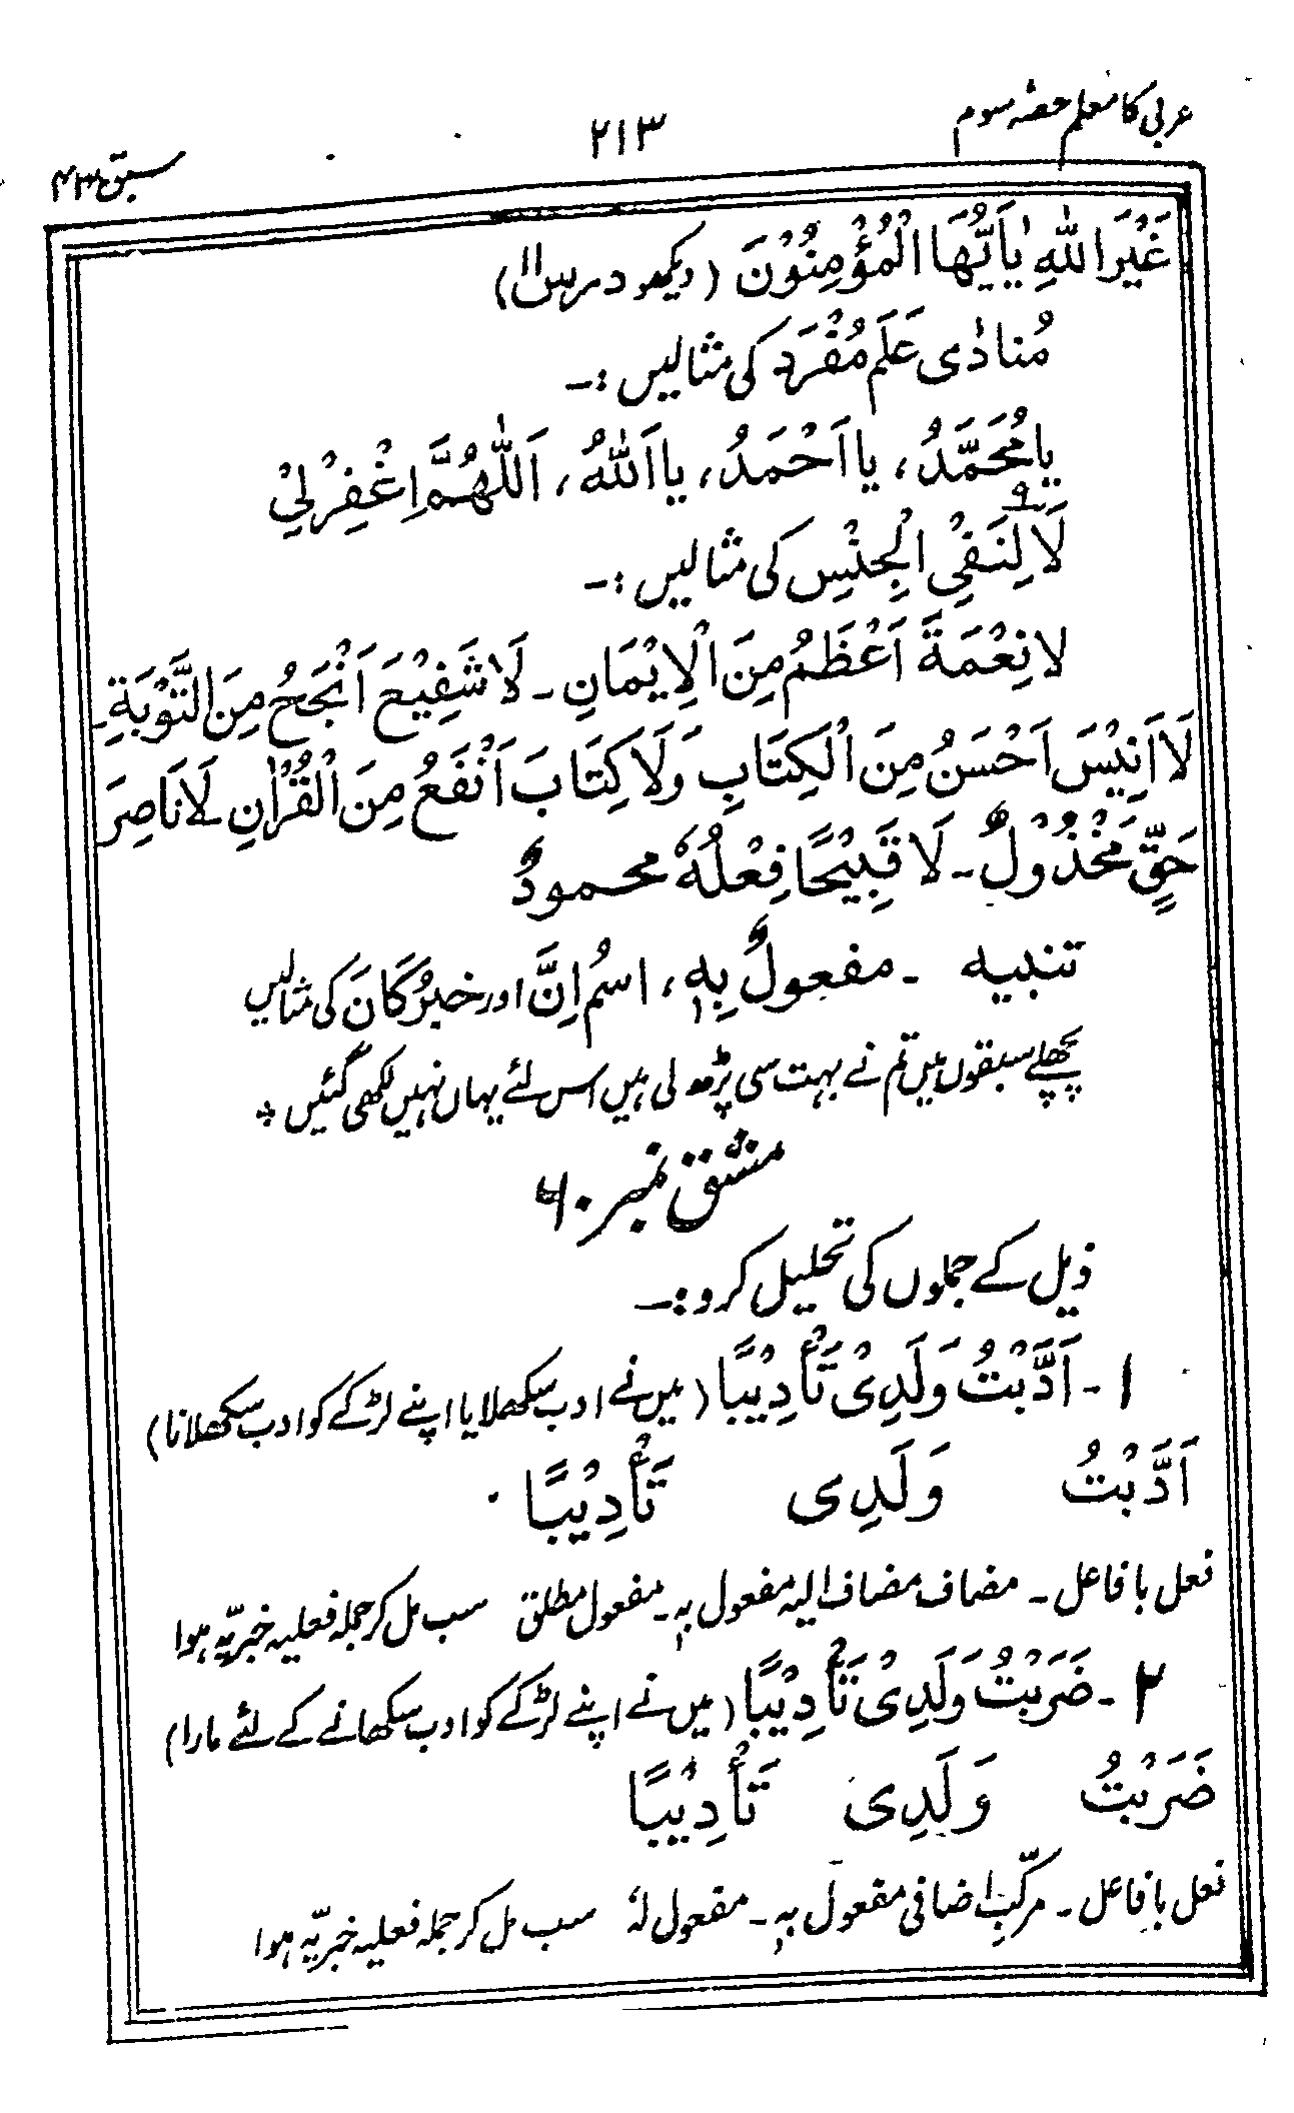 عربی کا معلم حصّہ سوم
۲۱۳
سبق ۴۳
غَيْرَ اللهِ يٰاَيُّهَا الْمُؤْمِنُوْنَ (دیکھو درس ۱۱)
مُنادٰی عَلَم مُفْرَد کی مثالیں :۔
يا مُحَمَّدُ، يا اَحْمَدُ، يا اَللهُ، اَللّٰهُمَّ اغْفِرْ لِيْ
لَا لِنَفْيِ الْجِنْسِ کی مثالیں :۔
لا نِعْمَةَ اَعْظَمُ مِنَ الْاِيْمَانِ ۔ لَا شَفِيْعَ اَنْجَحُ مِنَ التَّوْبَةِ۔
لَا اَنِيْسَ اَحْسَنُ مِنَ الْكِتَابِ وَلَا كِتَابَ اَنْفَعُ مِنَ الْقُرْاٰنِ لَا نَاصِرَ
حَقٍّ مَخْذُوْلٌ۔ لَا قَبِيْحًا فِعْلُهٗ محمودٌ
تنبیہ ۔ مفعولٌ بِہٖ، اسمُ اِنَّ اور خبرُ كَانَ کی مثالیں
پچھلے سبقوں میں تم نے بہت سی پڑھ لی ہیں اس لئے یہاں نہیں لکھی گئیں ٭
مشق نمبر ۶۰
ذیل کے جملوں کی تحلیل کرو :۔
۱۔ اَدَّبْتُ وَلَدِيْ تَأْدِيْبًا (میں نے ادب سکھلایا اپنے لڑکے کو ادب سکھلانا)
اَدَّبْتُ وَلَدِی تَأْدِيْبًا
فعل با فاعل ۔ مضاف مضاف الیہ مفعول بہٖ۔ مفعول مطلق سب مل کر جملہ فعلیہ خبریّہ ہوا
۲۔ ضَرَبْتُ وَلَدِيْ تَأْدِيْبًا (میں نے اپنے لڑکے کو ادب سکھانے کے لئے مارا)
ضَرَبْتُ وَلَدِی تَأْدِيْبًا
فعل با فاعل ۔ مرکّب اضافی مفعول بہٖ۔ مفعول لہٗ سب مل کر جملہ فعلیہ خبریّہ ہوا